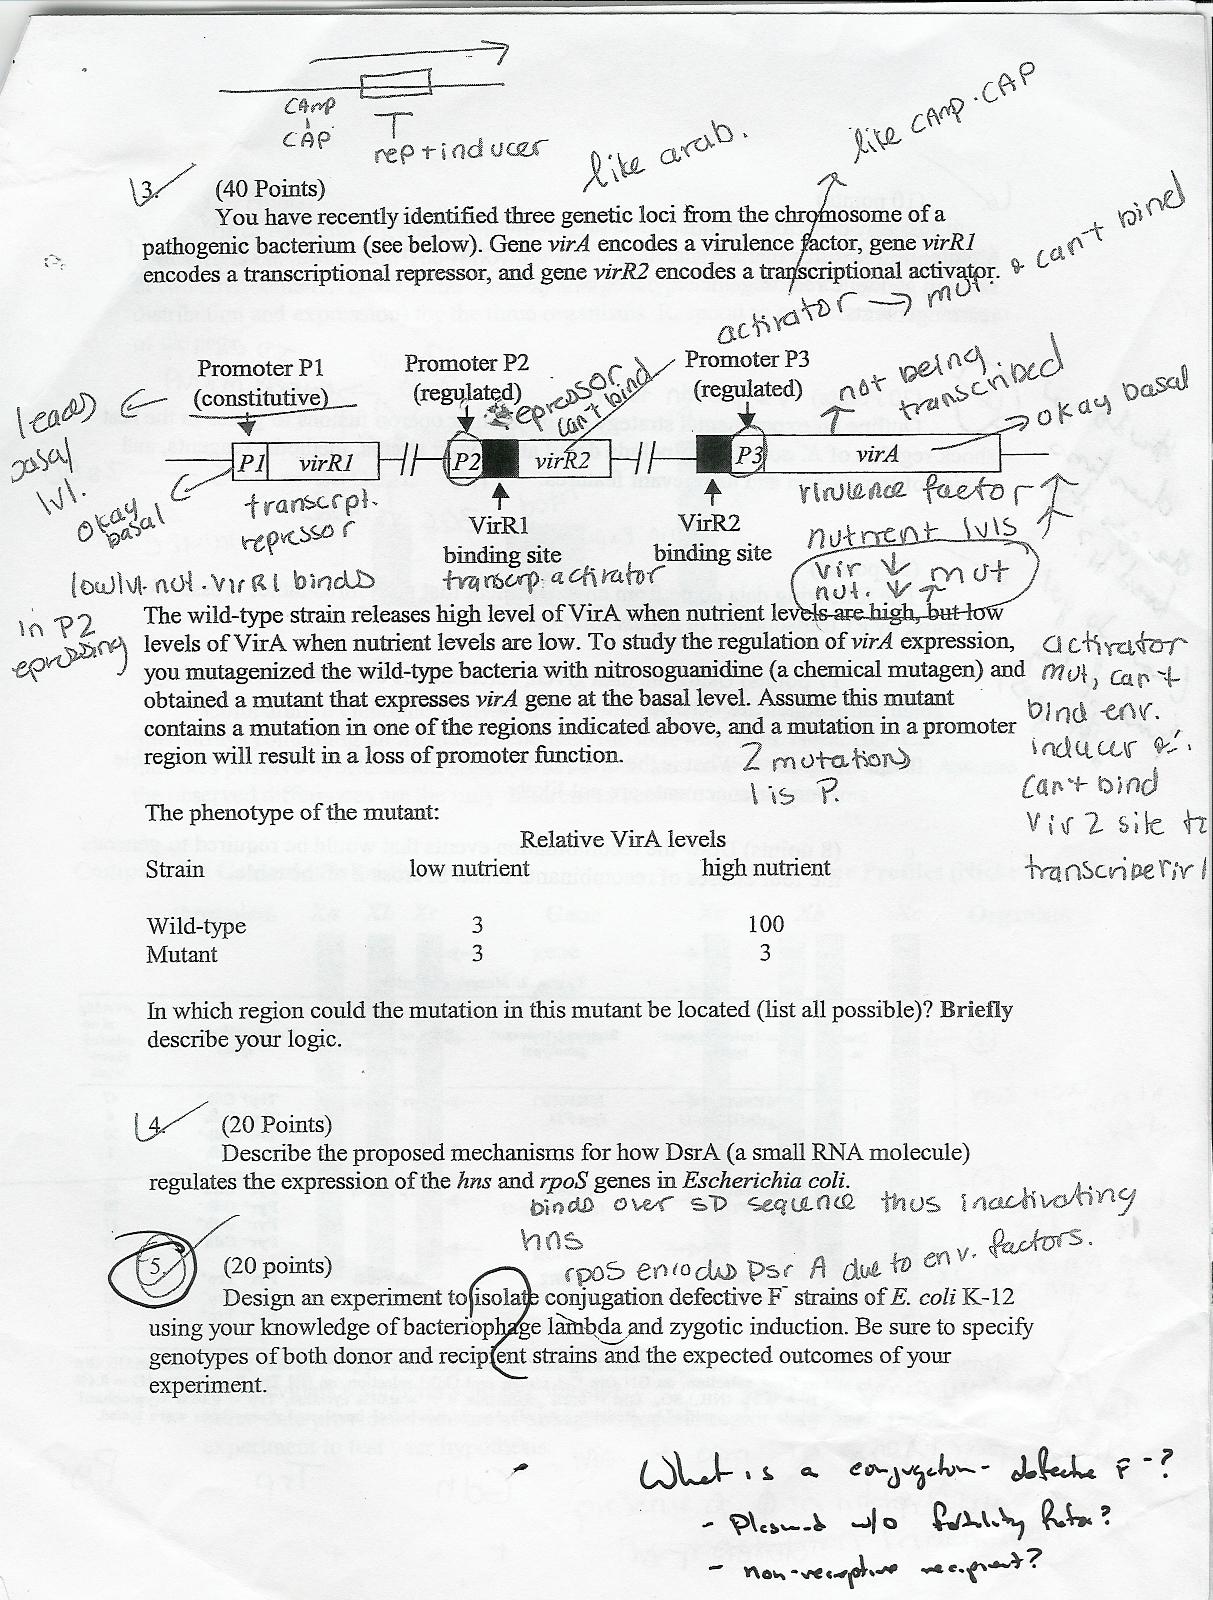 CAmp
CAP
rep + inducer
like arab.
like CAmp·CAP
3.
(40 Points)
You have recently identified three genetic loci from the chromosome of a
pathogenic bacterium (see below). Gene virA encodes a virulence factor, gene virR1
encodes a transcriptional repressor, and gene virR2 encodes a transcriptional activator.
activator → mut. & can't bind
Promoter P1
(constitutive)
Promoter P2
(regulated)
Promoter P3
(regulated)
repressor
can't bind
not being
transcribed
okay basal
leads
basal
lvl.
okay
basal
P1 virR1
P2 virR2
P3 virA
transcrpt.
repressor
VirR1
binding site
transcrp. activator
VirR2
binding site
virulence factor ↑
nutrient lvls ↑
vir ↓ mut
nut. ↓ ↑
low lvl. nut. VirR1 binds
in P2
epressing
The wild-type strain releases high level of VirA when nutrient levels are high, but low
levels of VirA when nutrient levels are low. To study the regulation of virA expression,
you mutagenized the wild-type bacteria with nitrosoguanidine (a chemical mutagen) and
obtained a mutant that expresses virA gene at the basal level. Assume this mutant
contains a mutation in one of the regions indicated above, and a mutation in a promoter
region will result in a loss of promoter function.
2 mutations
1 is P.
activator
mut, can't
bind env.
inducer
can't bind
Vir 2 site to
transcribe
The phenotype of the mutant:
Relative VirA levels
Strain low nutrient high nutrient
Wild-type 3 100
Mutant 3 3
In which region could the mutation in this mutant be located (list all possible)? Briefly
describe your logic.
4.
(20 Points)
Describe the proposed mechanisms for how DsrA (a small RNA molecule)
regulates the expression of the hns and rpoS genes in Escherichia coli.
binds over SD sequence thus inactivating
hns
rpoS encodes Dsr A due to env. factors.
5.
(20 points)
Design an experiment to isolate conjugation defective F⁻ strains of E. coli K-12
using your knowledge of bacteriophage lambda and zygotic induction. Be sure to specify
genotypes of both donor and recipient strains and the expected outcomes of your
experiment.
What is a conjugation-defective F-?
- Plasmid w/o fertility factor?
- non-receptive recipient?